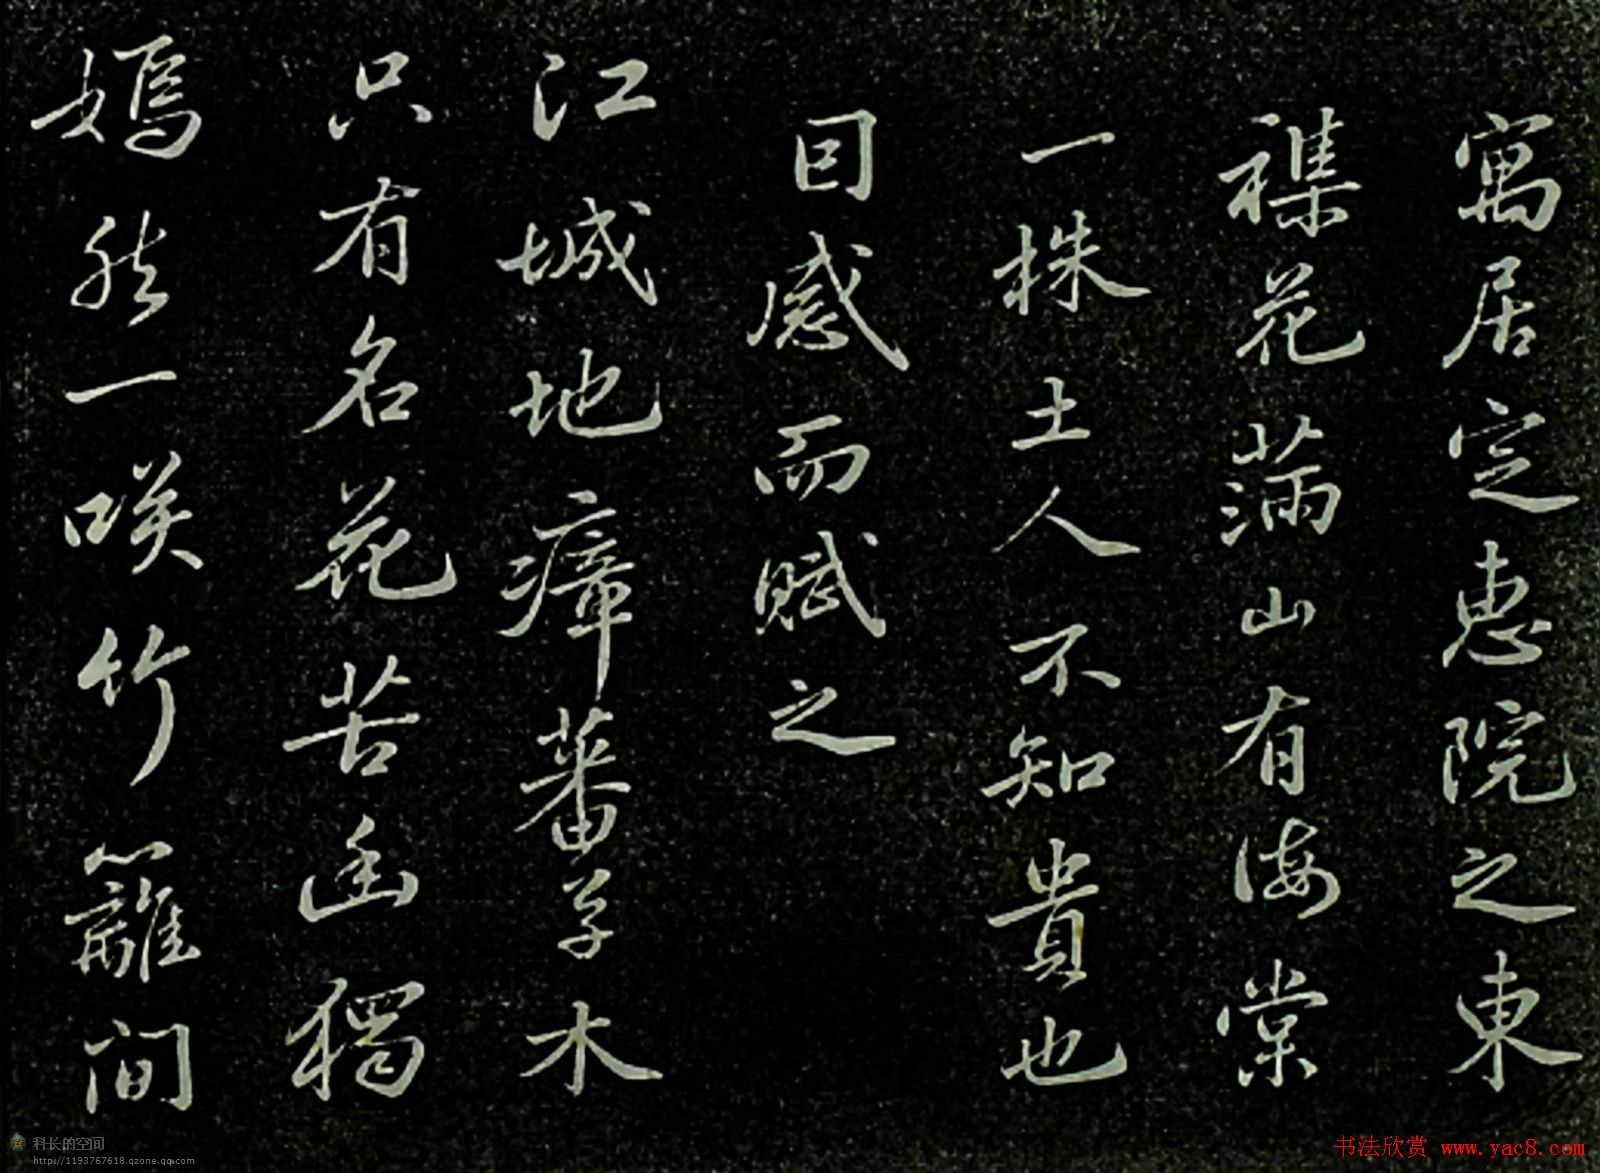 寓居定惠院之東
襍花滿山有海棠
一株土人不知貴也
囙感而賦之
江城地瘴蕃草木
只有名花苦幽獨
嫣然一咲竹籬間
科长的空间
http://1193767618.qzone.qq.com
书法欣赏 www.yac8.com